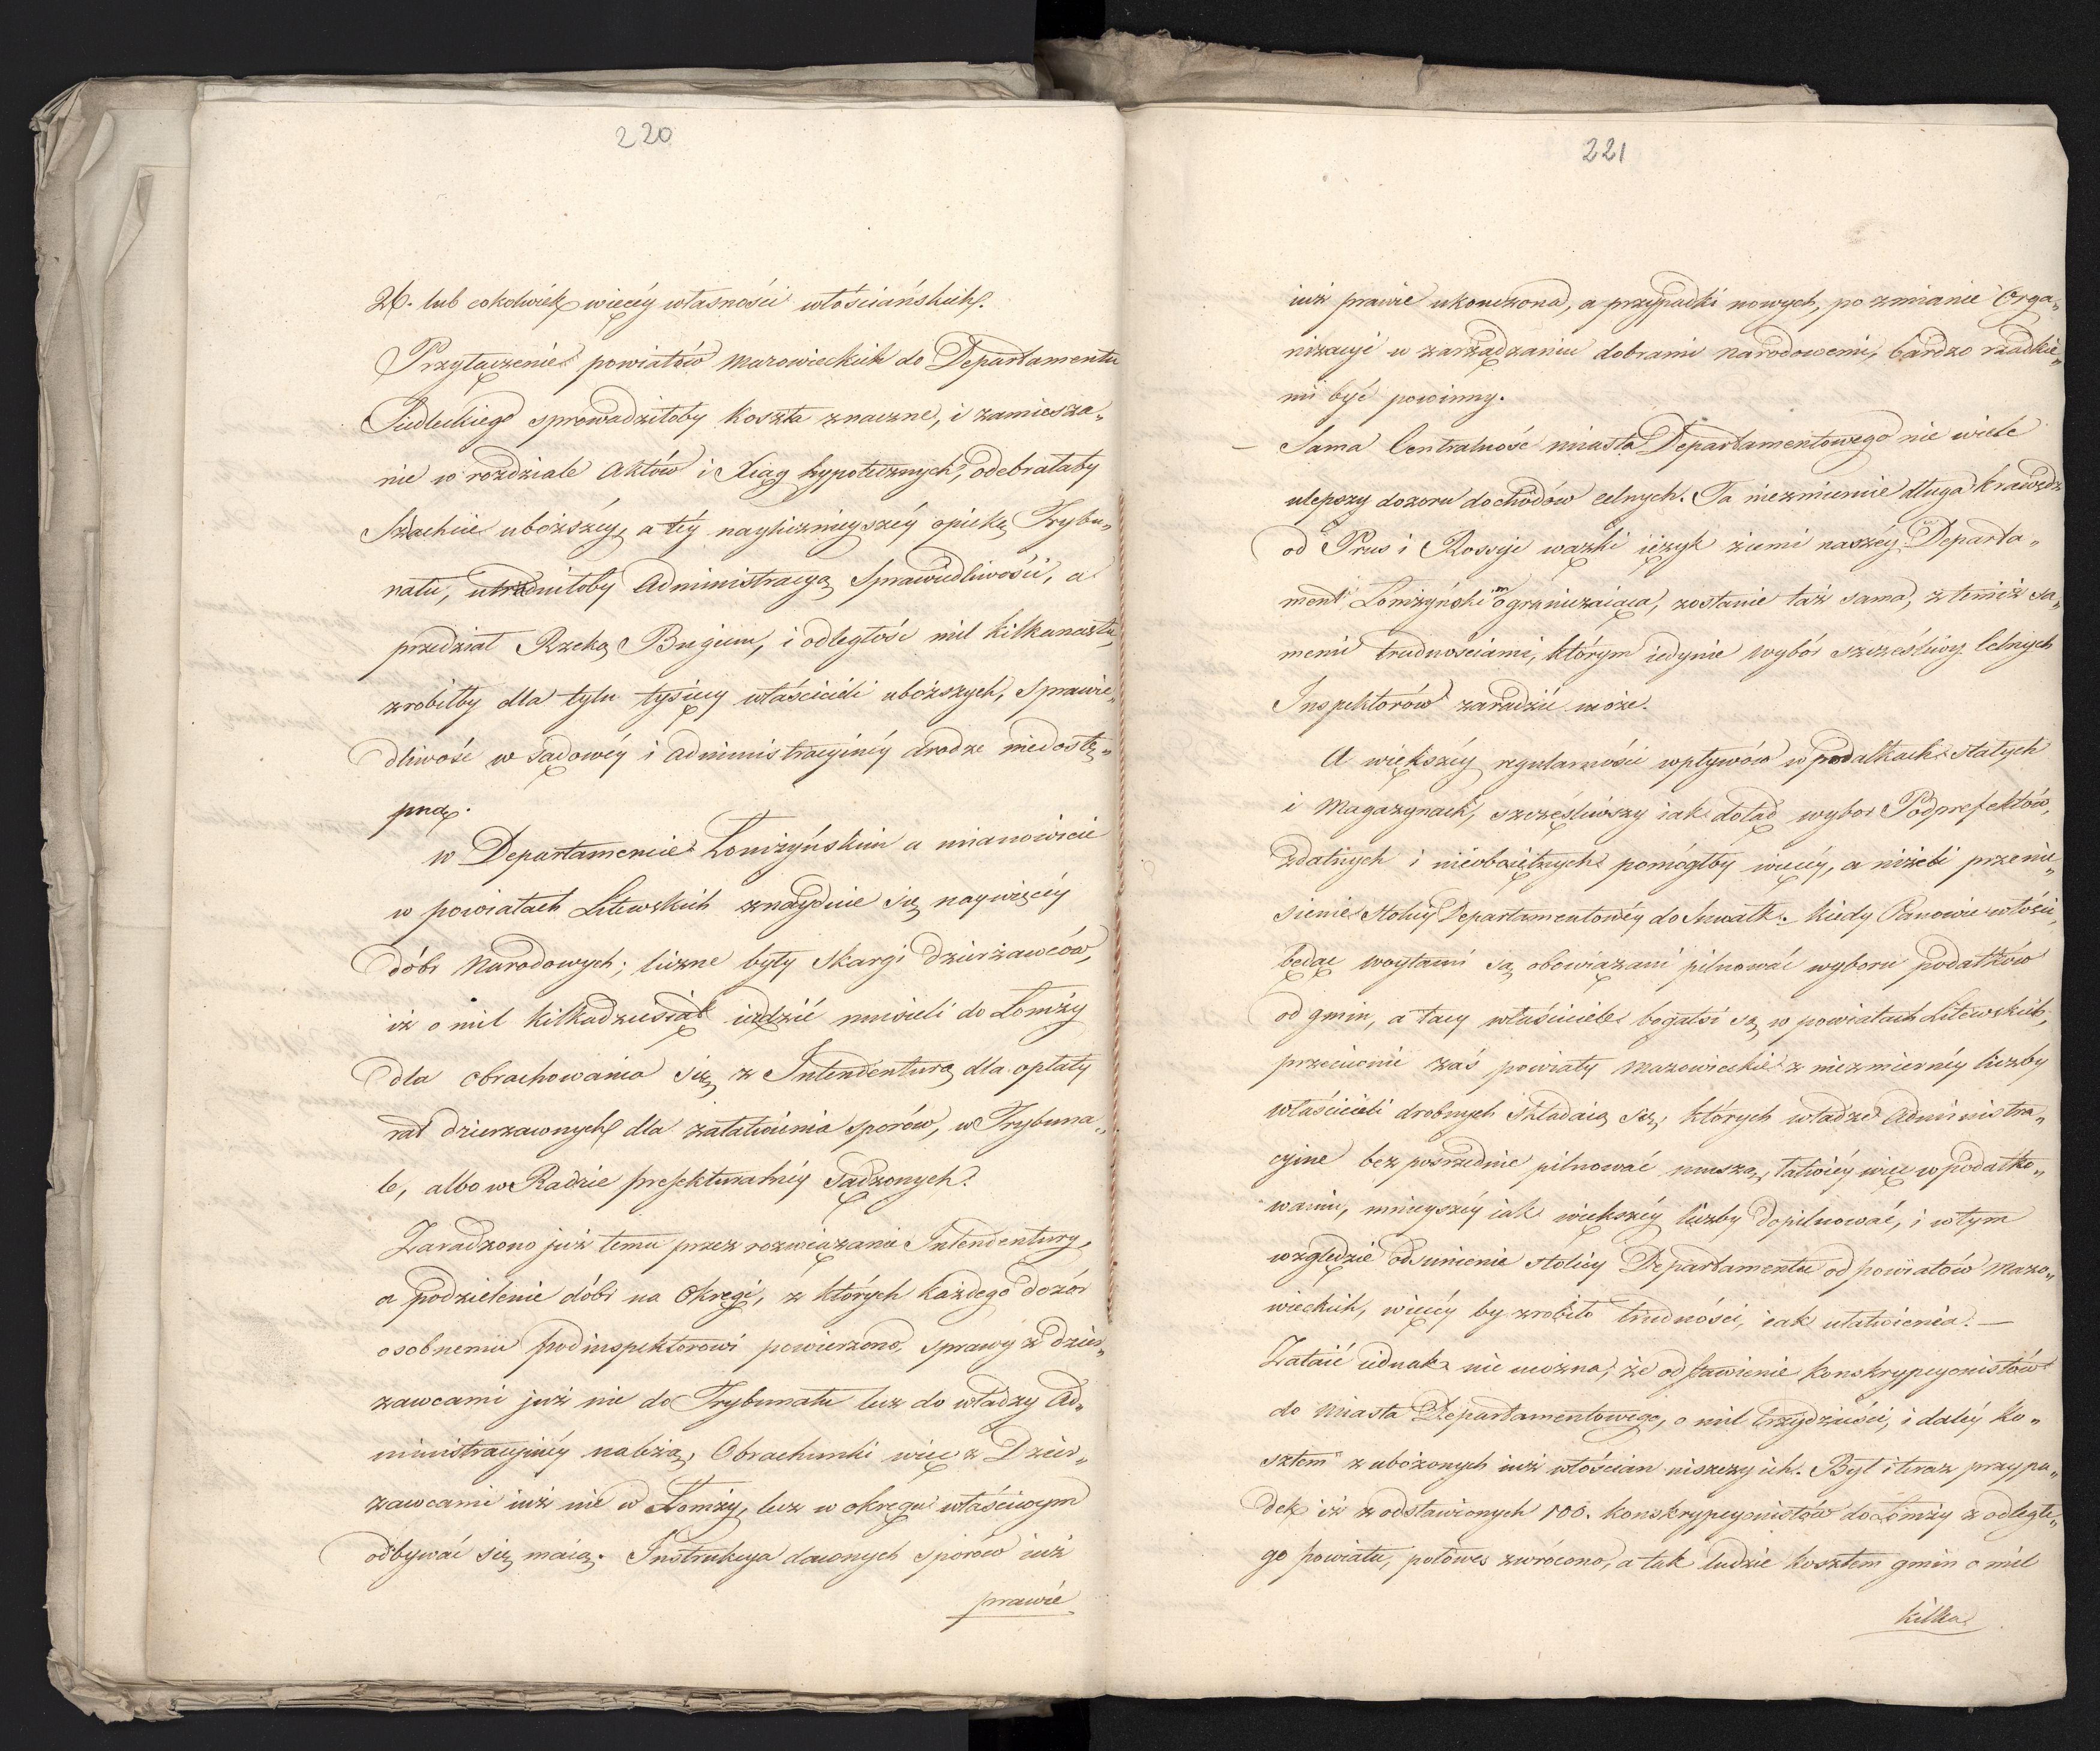 220
26. lub cokolwiek więcéy własności włościańskich.
Przyłączenie powiatów Mazowieckich do Departamentu
Siedleckiego sprowadziłoby koszta znaczne, i zamiesza„
nie w rozdziale Aktów i Xiąg hypotecznych, odebrałaby
Szlachcie uboższéy, a téy nayliczniéyszéy opiekę Trybu„
nału, utrudniłoby Administracyą Sprawiedliwości, a
przedział Rzeką Bugiem, i odległość mil kilkanastu
zrobiłby dla tylu tysięcy właścicieli uboższych, Sprawie„
dliwość w Sądowéy i Administracyinéy drodze niedostę„
pną.
w Departamencie Łomżyńskim a mianowicie
w powiatach Litewskich znayduie się naywięcéy
dóbr Narodowych; liczne były Skargi dzierżawców,
iż o mil kilkadziesiąt ieździć musieli do Łomży
dla obrachowania się z Intendenturą dla opłaty
rat dzierżawnych dla załatwienia sporów, w Trybuna„
le, albo w Radzie prefekturalnéy Sądzonych.
Zaradzono już temu przez rozwiązanie Intendentury,
a podzielenie dóbr na Okręgi, z których każdego dozór
osobnemu podinspektorowi powierzono, sprawy z dzier„
zawcami już nie do Trybunału lecz do władzy Ad„
ministracyjnéy należą; Obrachunki więc z Dzier„
zawcami iuż nie w Łomży, lecz w okręgu właściwym
odbywać się maią. Instrukcya dawnych sporów iuż
prawie
221
iuż prawie ukonczona, a przypadki nowych, po zmianie Orga„
nizacyi w zarządzaniu dobrami Narodowemi, bardzo rzadkie„
mi być powinny.
– Sama Centralność miasta Departamentowego nie wiele
ulepszy dozoru dochodów celnych. Ta niezmiernie długa krawędz
od Prus i Rossyi wązki ięzyk ziemi naszéy w Departa„
ment Łomżyńskim ograniczaiąca, zostanie taż sama, z temiż sa„
memi trudnościami, którym iedynie wybór szczęśliwy Celnych
Inspektorów zaradzić może.
A większéy regularności wpływów w podatkach stałych
i Magazynach, szczęśliwszy iak dotąd wybor Podprefektów,
zdatnych i nieobojętnych pomógłby więcéy, a niżeli przenie„
sienie stolicy Departamentowéy do Suwałk. – kiedy Panowie włości,
będąc woytami są obowiązani pilnować wyboru podatków
od gmin, a tacy właściciele bogatsi są w powiatach Litewskich,
przeciwnie zaś powiaty Mazowieckie z niezmiernéy liczby
właścicieli drobnych składaią się, których władze Administra„
cyine bezposrzednie pilnować muszą, łatwiéy więc w podatko„
waniu, mnieyszéy iak większéy liczby dopilnować, i w tym
względzie odsunienie stolicy Departamentu od powiatów Mazo„
wieckich, więcéy by zrobiło trudności, iak ułatwienia. –
Zataić iednak nie można, że odstawienie konskrypcyonistów
do miasta Departamentowego, o mil trzydzieści, i daléy ko„
sztem zubożonych iuż włościan niszczy ich. Był i teraz przypa„
dek iż z odstawionych 100. konskrypcyonistów do Łomży z odległe„
go powiatu, połowę zwrócono, a tak ludzie kosztem gmin o mil
kilka